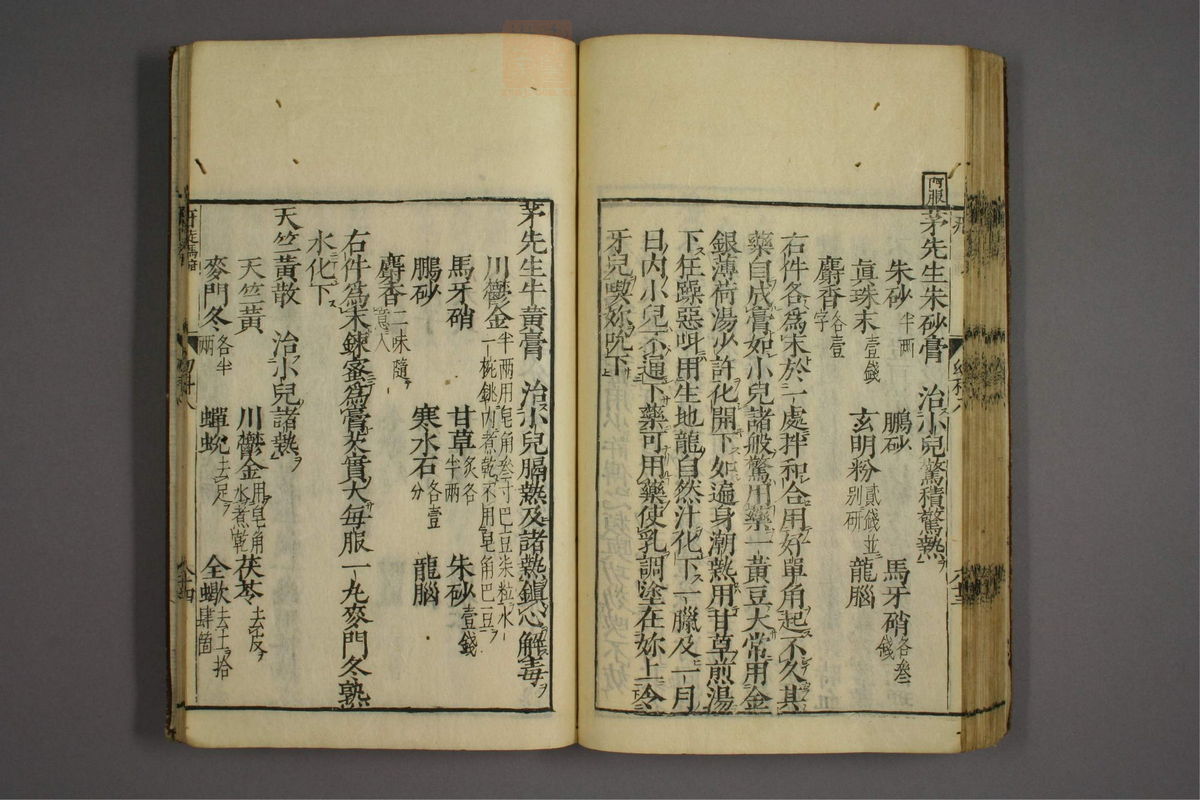 茅先生朱砂膏　治小兒驚積驚熱
朱砂半兩　鵬砂　馬牙硝各叁錢
眞珠末壹錢　玄明粉貳錢並別研　龍腦
麝香各壹字
右件各爲末於一處拌和合用好單角起不久其
藥自成膏如小兒諸般驚用藥一黃豆大常用金
銀薄荷湯少許化開下如遍身潮熱用甘草煎湯
下狂躁惡呌用生地龍自然汁化下一臘及一月
日内小兒不通下藥可用藥使乳調塗在妳上令
牙兒喫妳吮下
茅先生牛黃膏　治小兒膈熱及諸熱鎭心解毒
川鬱金半兩用皂角叁寸巴豆柒粒水一椀銚内煮乾不用皂角巴豆
馬牙硝　甘草炙各半兩　朱砂壹錢
鵬砂　寒水石各壹分　龍腦
麝香二味隨意入
右件爲末鍊蜜爲膏芡實大每服一丸麥門冬熟
水化下
天竺黃散　治小兒諸熱
天竺黃　川鬱金用皂角水煮乾　茯苓去皮
麥門冬各半兩　蟬蛻去足　全蠍去土拾肆箇